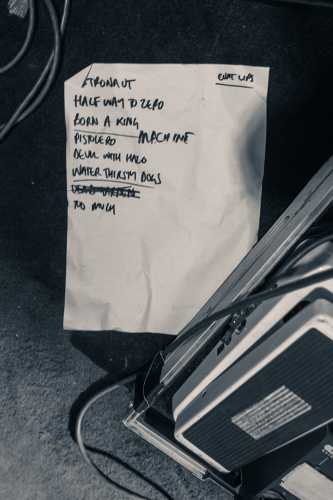 CUNT LIPS
TRONAUT
HALF WAY TO ZERO
BORN A KING
PISTOLERO MACHINE
DEVIL WITH HALO
WATER THIRSTY DOGS
TOO MUCH